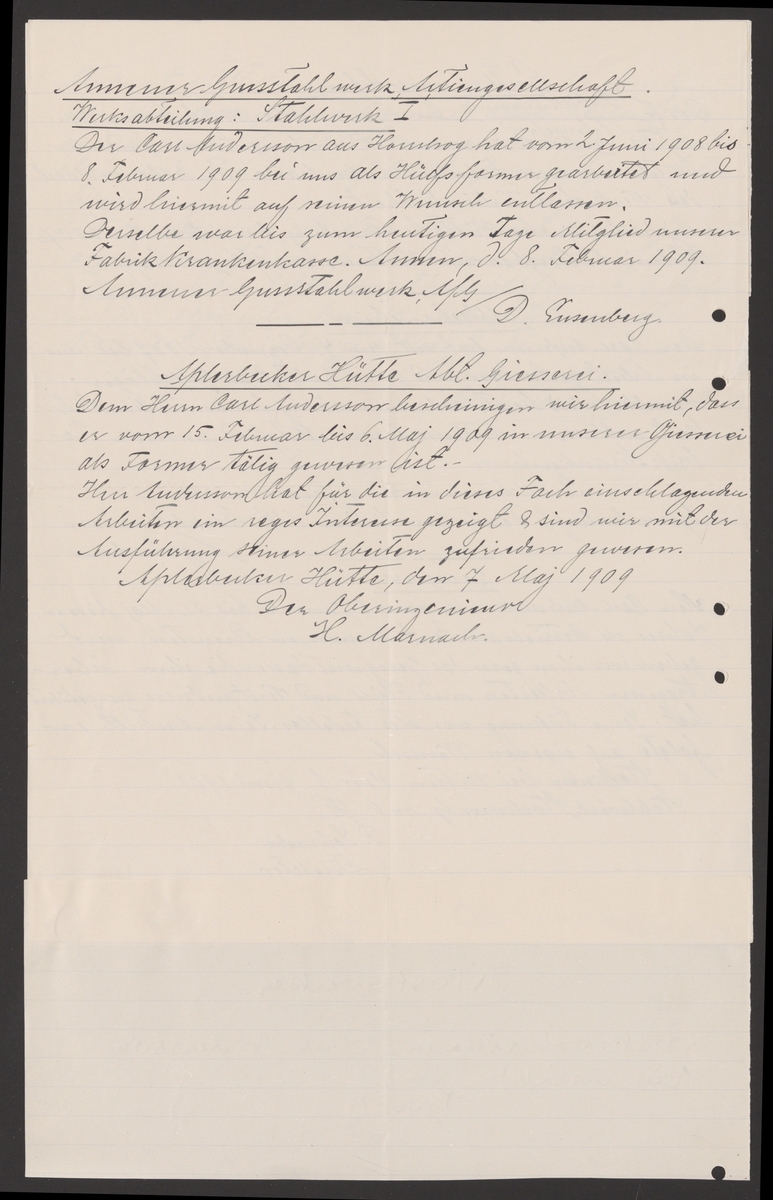 Annener Gussstahlwerk, Aktiengesellschaft.
Werksabteilung: Stahlwerk I
Der Carl Andersson aus Hombog hat vom 2 Juni 1908 bis
8. Februar 1909 bei uns als Hülfsformer gearbeitet und
wird hiermit auf seinen Wunsch entlassen.
Derselbe war bis zum heutigen Tage Mitglied unserer
Fabrik Krankenkasse. Annen, d. 8. Februar 1909.
Annener Gussstahlwerk, A/G
D. Eusenberg.
Aplerbecker Hütte Abt. Giesserei.
Dem Herrn Carl Andersson bescheinigen wir hiermit, dass
er vom 15. Februar bis 6. Maj 1909 in unserer Giesserei
als Former tätig gewesen ist.-
Herr Andersson hat für die in dieses Fach einschlagenden
Arbeiten ein reges Interesse gezeigt & sind wir mit der
Ausführung seiner Arbeiten zufrieden gewesen.
Aplerbecker Hütte, den 7 Maj 1909
Der Oberingenieur
H. Marnach.